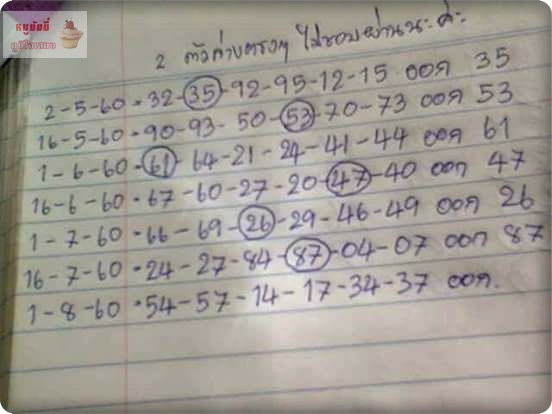 หนูขันตี
2 ตัวล่างตรงๆ ไม่ชอบผ่านนะ ค่ะ
2-5-60 • 32-35-92-95-12-15 ออก 35
16-5-60 • 90-93-50-53-70-73 ออก 53
1-6-60 • 61-64-21-24-41-44 ออก 61
16-6-60 • 67-60-27-20-47-40 ออก 47
1-7-60 • 66-69-26-29-46-49 ออก 26
16-7-60 • 24-27-84-87-04-07 ออก 87
1-8-60 • 54-57-14-17-34-37 ออก.